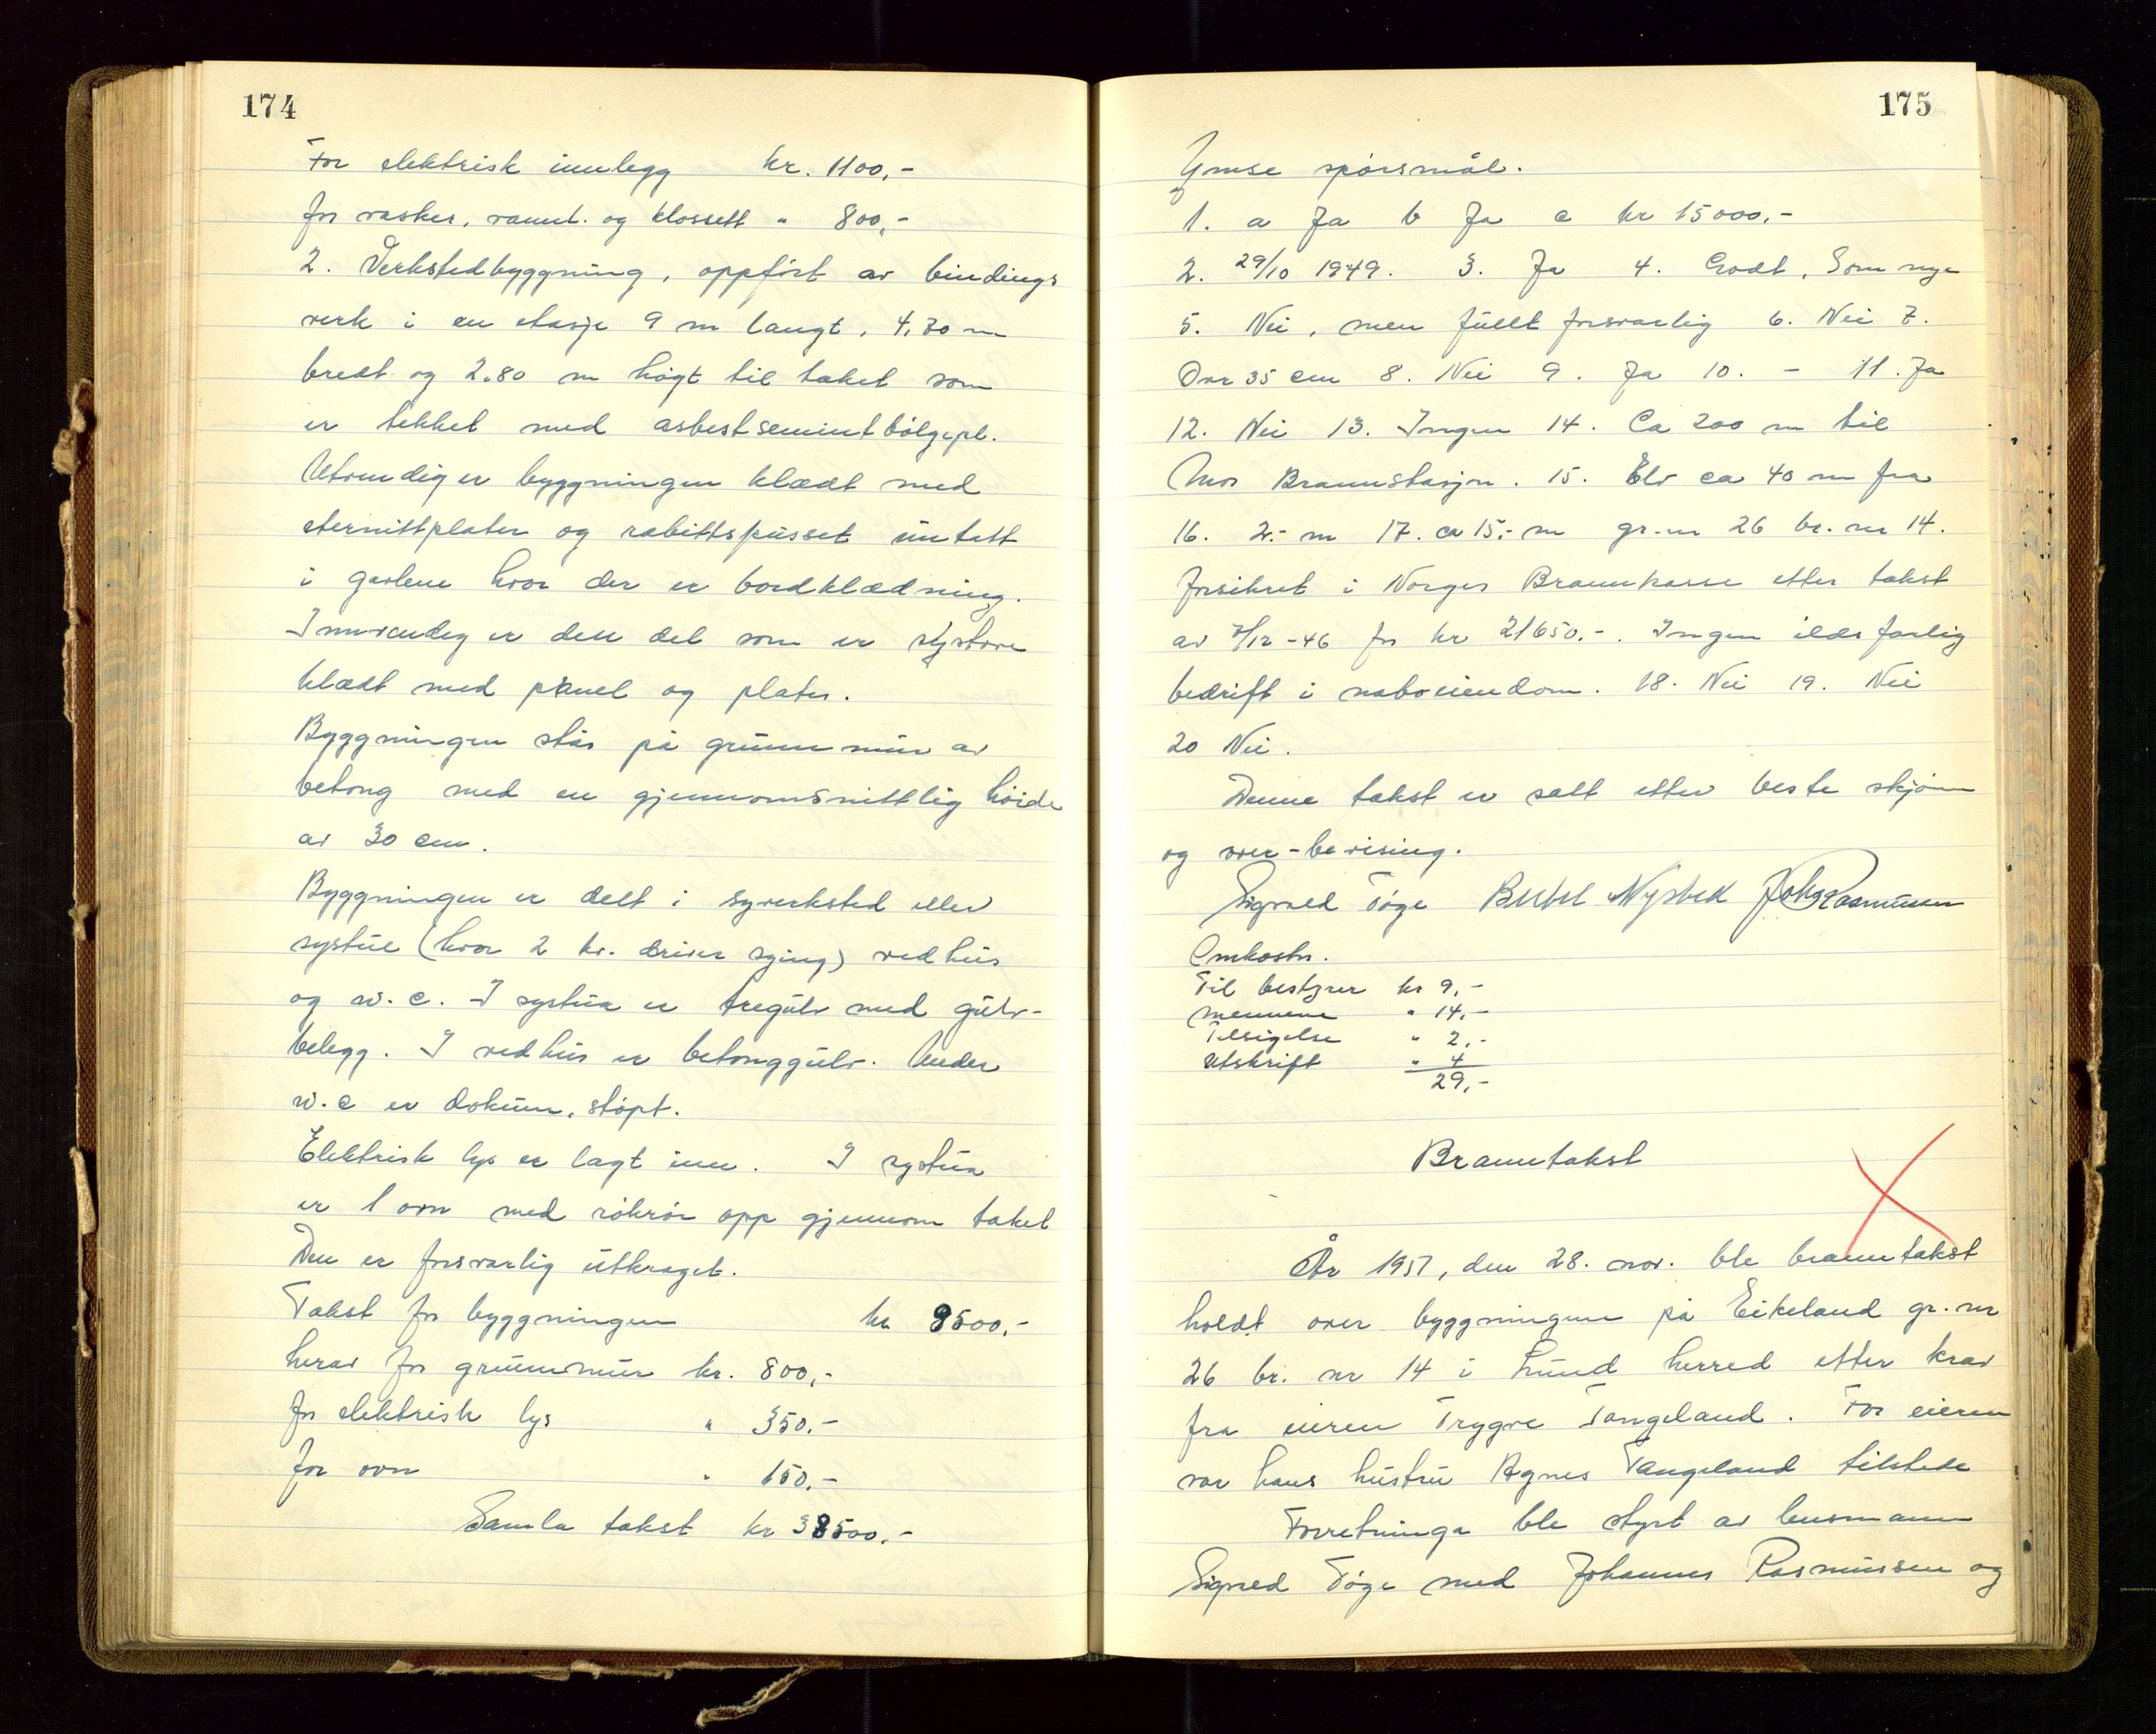 174
For elektrisk innlegg kr. 1100,-
for vasker, vannl. og klossett " 800,-
2. Verkstedbyggning, oppført av bindings
verk i en etasje 9 m langt, 4,70 m
bredt og 2.80 m høgt til taket som
er tekket med asbestsementbølgepl.
Utvendig er byggningen klædt med
eternittplater og rabittspusset untatt
i gavlene hvor der er bordklædning.
Innvendig er den del som er systove
klædt med panel og plater.
Byggningen står på grunnmur av
betong med en gjennomsnittlig høide
av 30 cm.
Byggningen er delt i syverksted eller
systue (hvor 2 kv. driver sying) vedhus
og w.c. I systua er tregulv med gulv-
belegg. I vedhus er betonggulv. Under
w.c er dokum, støpt.
Elektrisk lys er lagt inn. I systua
er 1 ovn med rökrör opp gjennom taket
Den er forsvarlig utkraget.
Takst for byggningen kr 9500,-
herav for grunnmur kr. 800,-
for elektrisk lys " 350,-
for ovn " 150,-
Samla takst kr 38500,-
175
Ymse spørsmål.
1. a Ja b Ja c kr 15000,-
2. 29/10 1949. 3. Ja 4. Godt, Som nye
5. Nei, men fullt forsvarlig 6. Nei 7.
Over 35 cm 8. Nei 9. Ja 10. - 11. Ja
12. Nei 13. Ingen 14. Ca 200 m til
Moi Brannstasjon. 15. Elv ca 40 m fra
16. 2.- m 17. ca 15.- m gr.nr 26 br. nr 14.
forsikret i Norges Brannkasse etter takst
av 7/12 -46 for kr 21650.-. Ingen ildsfarlig
bedrift i naboeiendom. 18. Nei 19. Nei
20 Nei.
Denne takst er satt etter beste skjønn
og over-bevising.
Sigvald Tøge Bertel Nystuk Johs Rasmussen
Omkostn.
Til bestyrer kr 9,-
mennene " 14,-
Tilsigelse " 2,-
Utskrift " 4
29,-
Branntakst
År 1957, den 28. nov. ble branntakst
holdt over byggningene på Eikeland gr. nr
26 br. nr 14 i Lund herred etter krav
fra eieren Trygve Tangeland. For eieren
var hans hustru Agnes Tangeland tilstede
Forretninga ble styrt av lensmann
Sigvald Tøge med Johannes Rasmussen og